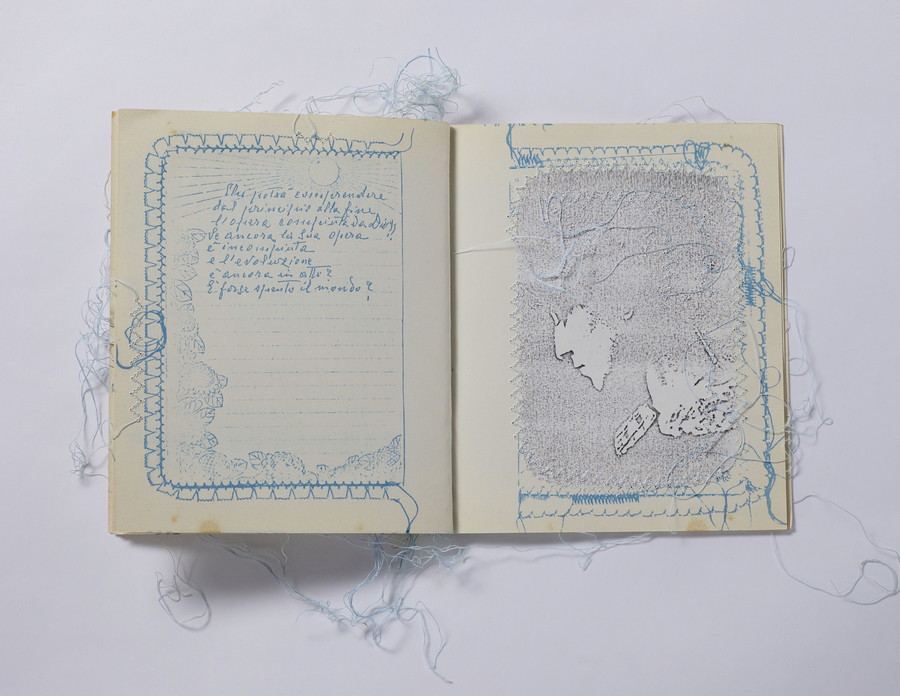 Chi potrà comprendere
dal principio alla fine
l'opera compiuta da Dio,
se ancora la Sua opera
è incompiuta
e l'evoluzione
è ancora in atto?
È forse spento il mondo?